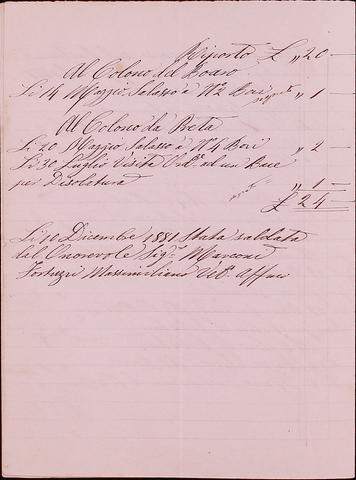 Riporto £ „ 20 —
Al Colono del Boaro
Li 14 Maggio Salasso a N.2 Bovi „ 1 —
Al Colono da Reta
Li 20 Maggio Salasso a N.4 Bovi „ 2 —
Li 30 Luglio Visita ad un Bove
per Disolatura „ 1 —
£ 24 —
Li 10 Dicembre 1881 Stata saldata
dal Onorevole Sig.r Marconi
Massimiliano